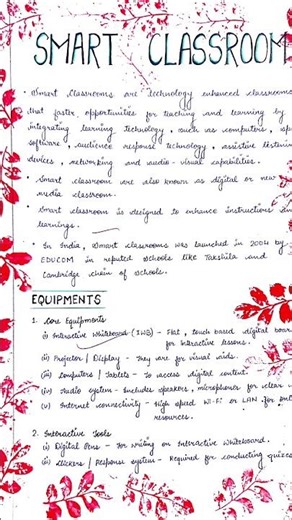 SMART CLASSROOM
• Smart Classrooms are technology enhanced classrooms
that foster opportunities for teaching and learning by
integrating learning technology, such as computers,
software, audience response technology, assistive listening
devices, networking and audio-visual capabilities.
• Smart classroom are also known as digital or new
media classroom.
• Smart classroom is designed to enhance instructions and
learnings.
• In India, Smart classrooms was launched in 2004 by
EDUCOM in reputed schools like Takshila and
Cambridge chain of schools.
EQUIPMENTS
1. Core Equipments
i) Interactive Whiteboard (IWB) - Flat, touch based digital board
for interactive lessons.
ii) Projector / Display - They are for visual aids.
iii) Computers / Tablets - To access digital content.
iv) Audio system - Includes speakers, microphones for clear
v) Internet connectivity - High speed Wi-Fi or LAN for
resources.
2. Interactive Tools
i) Digital Pens - For writing on Interactive Whiteboard.
ii) Clickers / Response system - Required for conducting quizzes